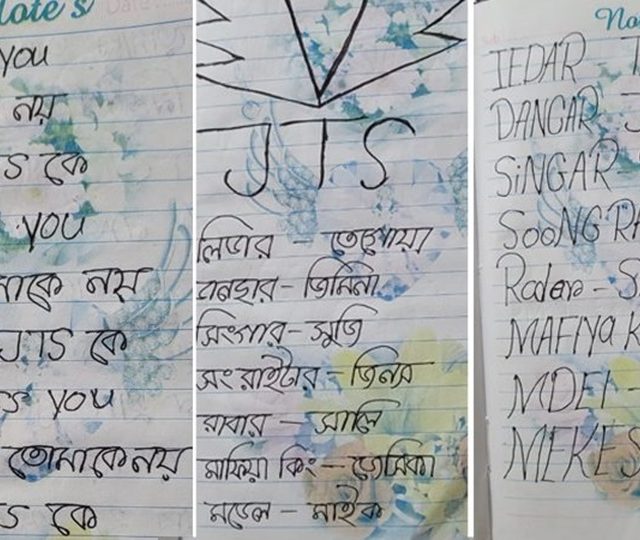 Note's
YOU
নয়
S কে
YOU
নয়
JTS কে
YOU
তোমাকে নয়
কে
JTS
লিডার -
ডানছার - জিমিনী
সিংগার - সুজি
সং রাইটার - জিনস
রাবার - সালি
মাফিয়া কিং - জেসিকা
মডেল - মাইক
No
IEDAR
DANGAR
SiNGAR
SooNG
Roder - S
MAFIYa K
MDEL -
MEKE